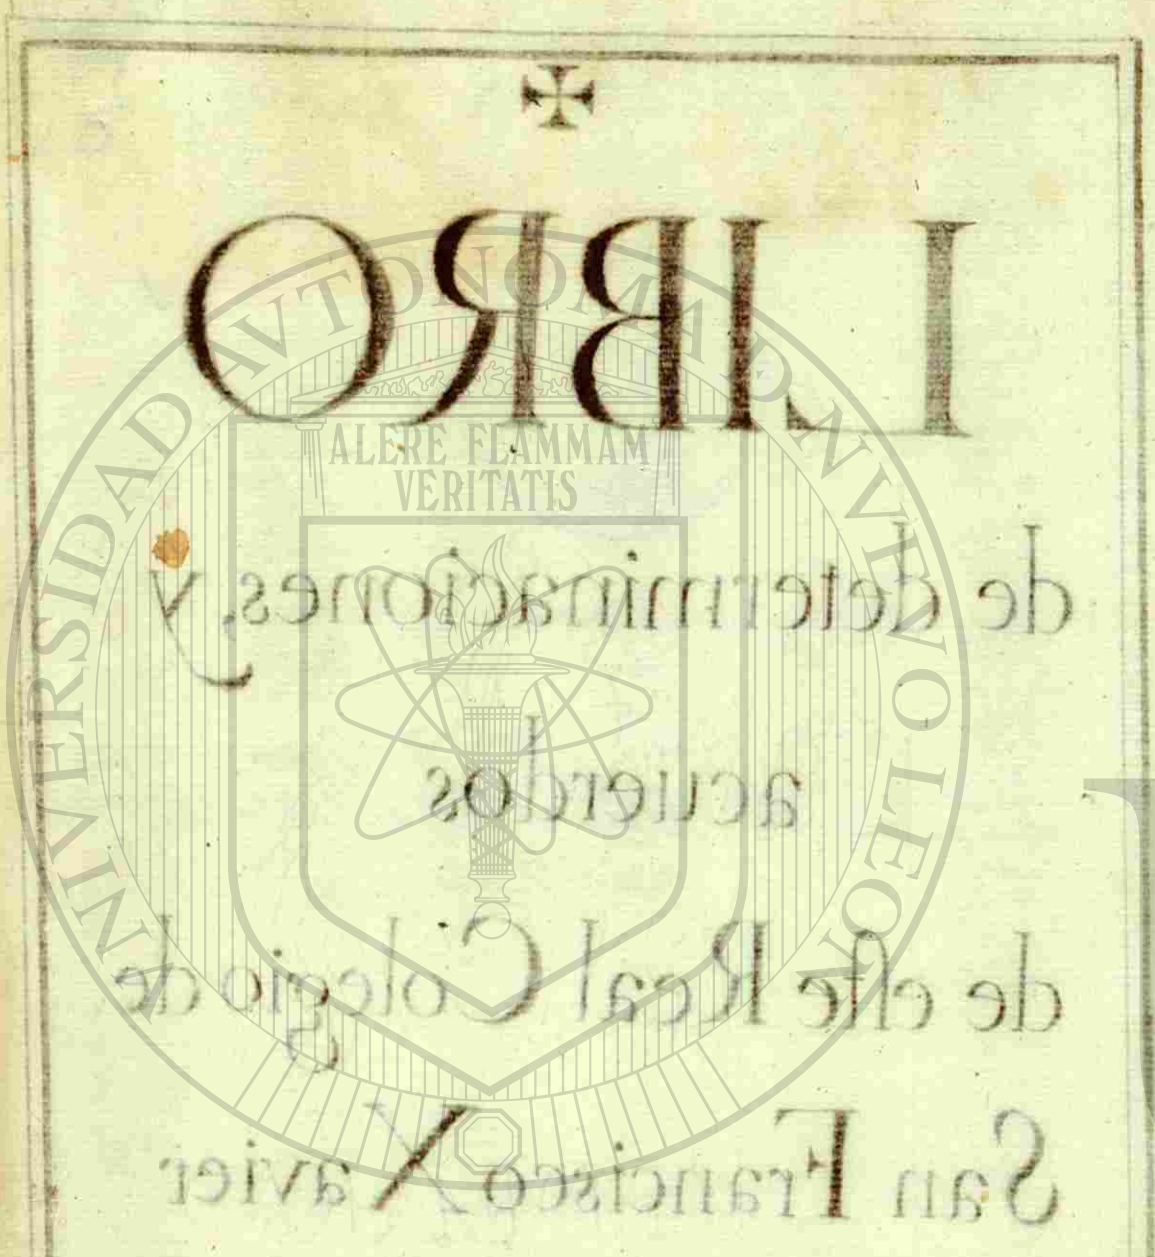 LIBRO
de determinaciones, y
acuerdos
de este Real Colegio de
San Francisco Xavier
UNIVERSIDAD AVTONOMA D NVEVO LEON
ALERE FLAMMAM
VERITATIS